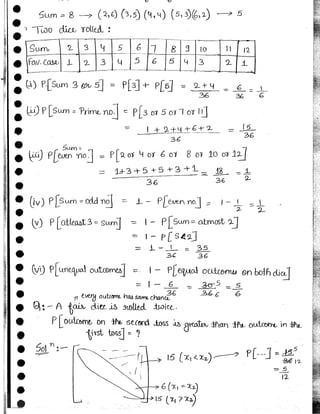 Sum = 8 → (2,6) (3,5) (4,4) (5,3) (6,2) → 5
Two dice rolled :
Sum 2 3 4 5 6 7 8 9 10 11 12
Fav. Case 1 2 3 4 5 6 5 4 3 2 1
(i) P[Sum 3 or 5] = P[3] + P[5] = 2+4/36 = 6/36 = 1/6
(ii) P[Sum = Prime no.] = P[2 or 3 or 5 or 7 or 11]
= 1+2+4+6+2/36 = 15/36
(iii) P[Sum = even no.] = P[2 or 4 or 6 or 8 or 10 or 12]
= 1+3+5+5+3+1/36 = 18/36 = 1/2
(iv) P[Sum = odd no] = 1 - P[even no.] = 1 - 1/2 = 1/2
(v) P[atleast 3 = sum] = 1 - P[Sum = atmost 2]
= 1 - P[S≤2]
= 1 - 1/36 = 35/36
(vi) P[unequal outcomes] = 1 - P[equal outcomes on both dice]
= 1 - 6/36 = 30/36 = 5/6
every outcome has same chance
Q:- A fair dice is rolled twice.
P[outcome on the second toss is greater than the outcome in the
first toss] = ?
Solⁿ:-
→ 15 (x₁<x₂) → P[---] = 15/36 = 5/12
→ 6 (x₁ = x₂)
→ 15 (x₁ > x₂)